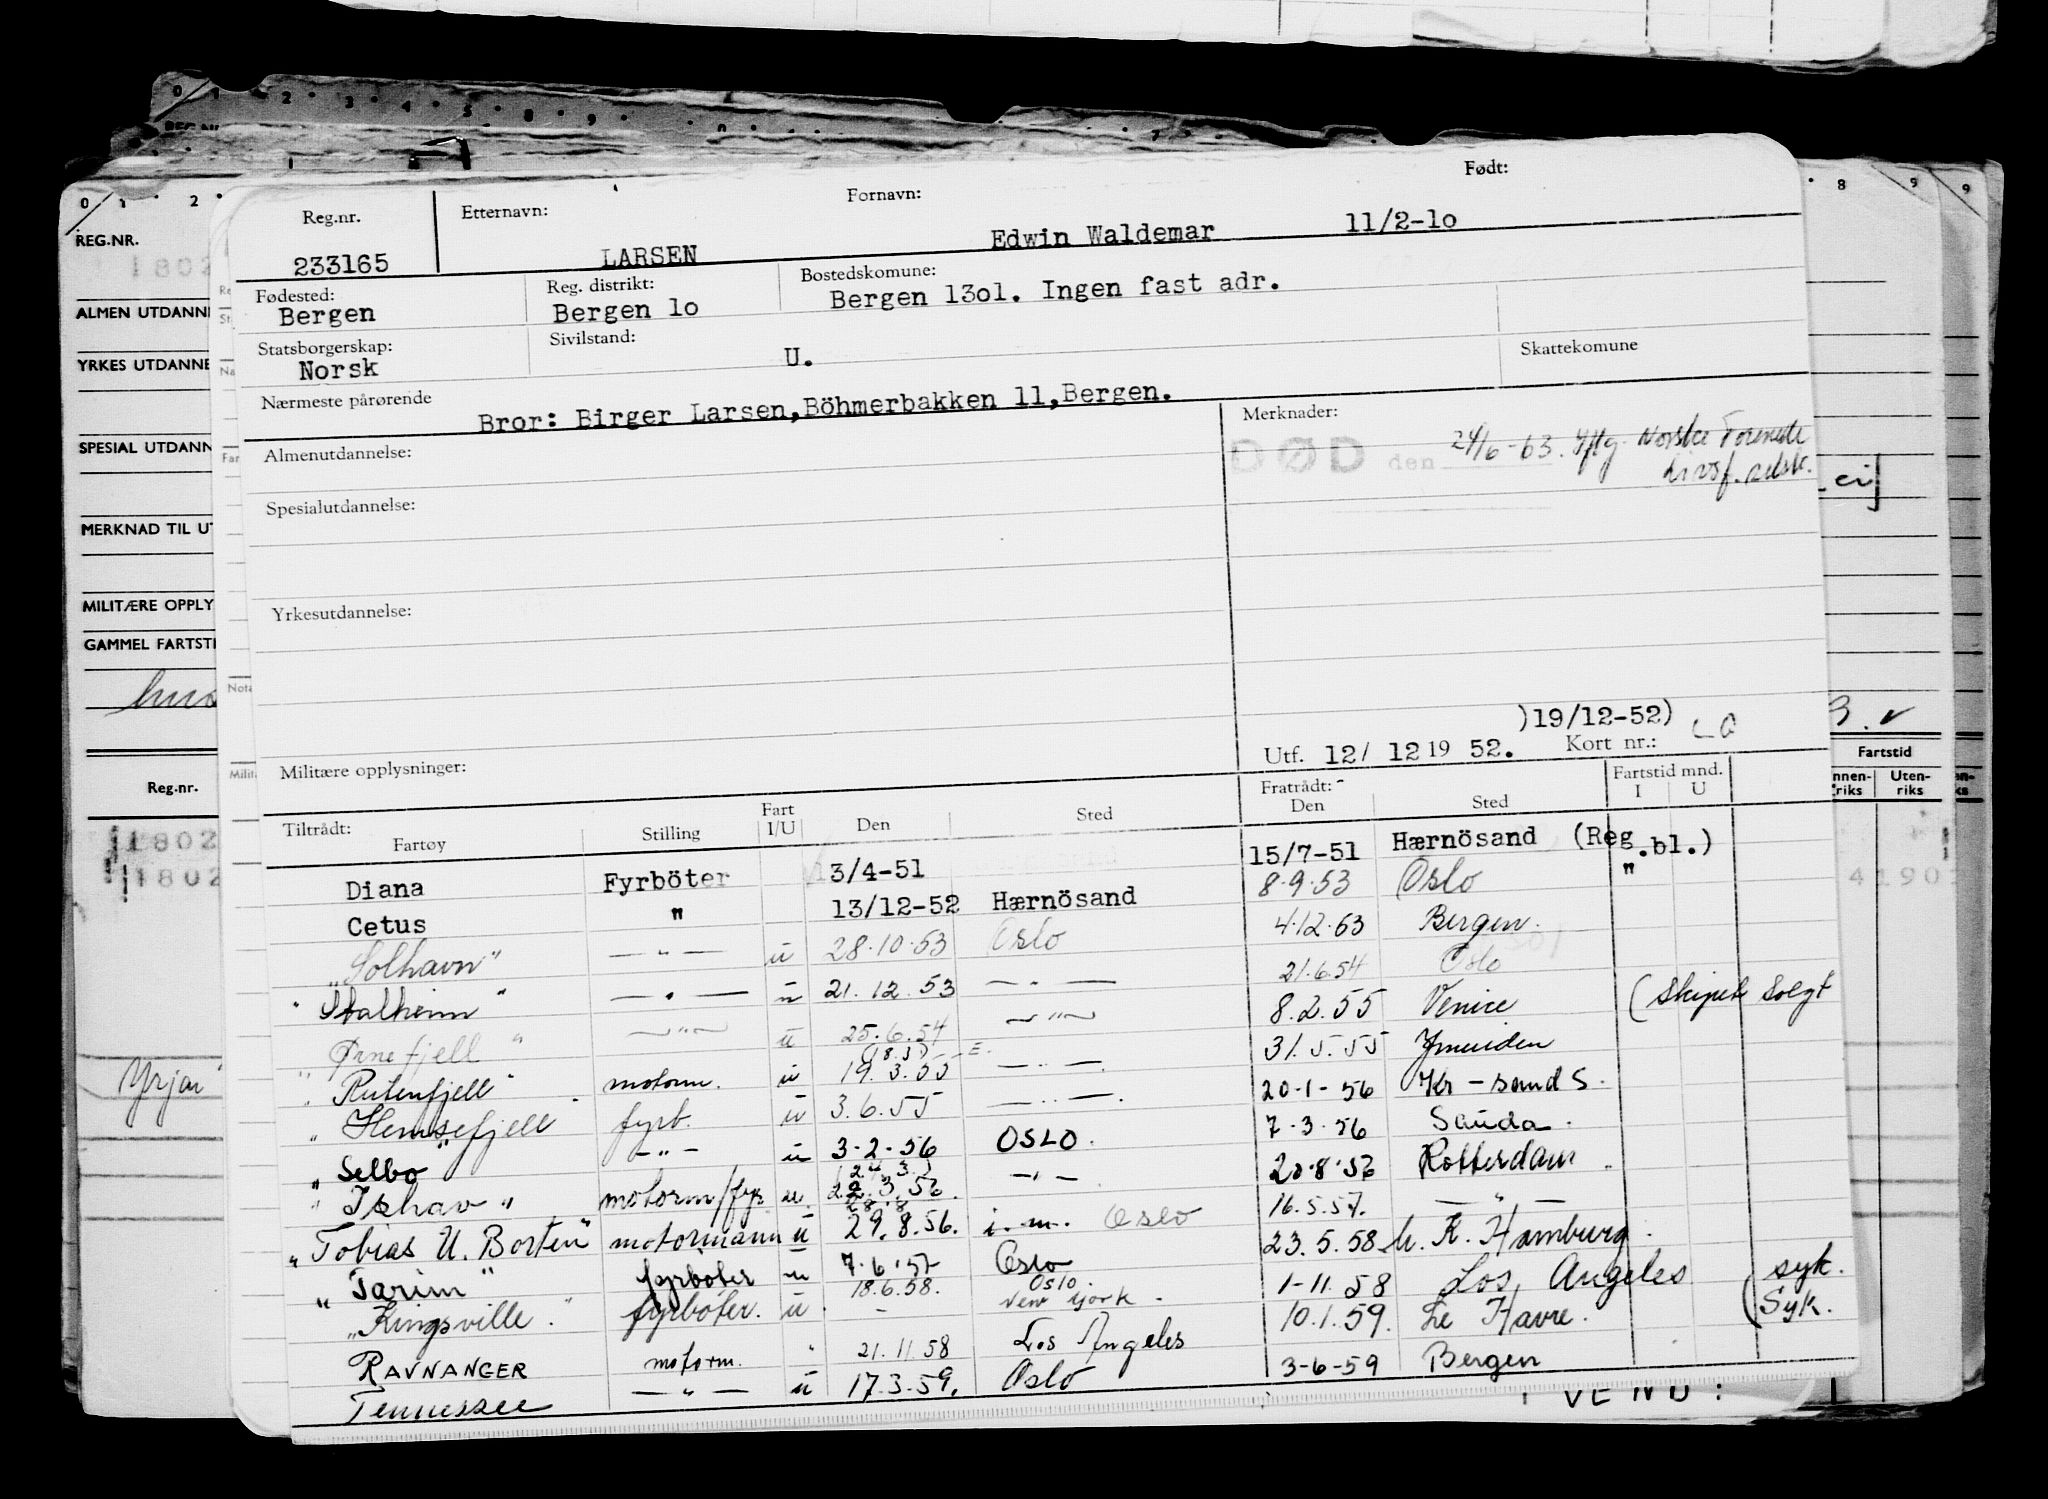 0 1 2 3 4 5 8 9 0
0 1 2 8 9 9
REG.NR.
1802
ALMEN UTDANN
YRKES UTDANNE
SPESIAL UTDANN
MERKNAD TIL UT
MILITÆRE OPPLY
GAMMEL FARTSTI
Reg.nr.
1802
1802
Yrjar
Fartstid
nnen-riks Uten-riks
4190
Reg.nr. Etternavn: Fornavn: Født:
233165 LARSEN Edwin Waldemar 11/2-1o
Fødested: Reg. distrikt: Bostedskomune:
Bergen Bergen 1o Bergen 13o1. Ingen fast adr.
Statsborgerskap: Sivilstand: Skattekomune
Norsk U.
Nærmeste pårørende Bror: Birger Larsen,Böhmerbakken 11,Bergen.
Almenutdannelse: Merknader:
DØD den 24/6-63. Iflg. Norske Forenede
Livsf. selsk.
Spesialutdannelse:
Yrkesutdannelse:
)19/12-52)
Militære opplysninger: Utf. 12/ 12 19 52. Kort nr.:
Tiltrådt: Fratrådt: Fartstid mnd.
Fartøy Stilling Fart I/U Den Sted Den Sted I U
Diana Fyrböter 3/4-51 15/7-51 Hærnösand (Reg.bl.)
Cetus " 13/12-52 Hærnösand 8.9.53 Oslo "
"Solhavn" — " — u 28.10.53 Oslo 4.12.63 Bergen.
"Stalheim" — " — u 21.12.53 — " — 21.6.54 Oslo
"Ørnefjell" — " — u 25.6.54 — " — 8.2.55 Venice (Skipet solgt
"Rutenfjell" motorm. u 19.3.55 — " — 31.5.55 Ymuiden
"Hemsefjell" fyrb. u 3.6.55 — " — 20-1-56 Kr-sand S.
"Selbo" — " — u 3-2-56 OSLO. 7-3-56 Sauda.
"Ishav" motorm/fyr u 22.3.56 — " — 20.8.56 Rotterdam
"Tobias U. Borten" motormann u 29.8.56. i.m. Oslo 16.5.57. — " —
"Tarim" fyrböter u 7.6.57 Oslo 23.5.58 Hamburg.
"Kingsville" fyrböter. u 18.6.58. Oslo New York 1-11.58 Los Angeles (syk.
RAVNANGER motorm. " 21.11.58 Los Angeles 10.1.59. Le Havre. (Syk.
Tennessee — " — u 17.3.59. Oslo 3-6-59 Bergen